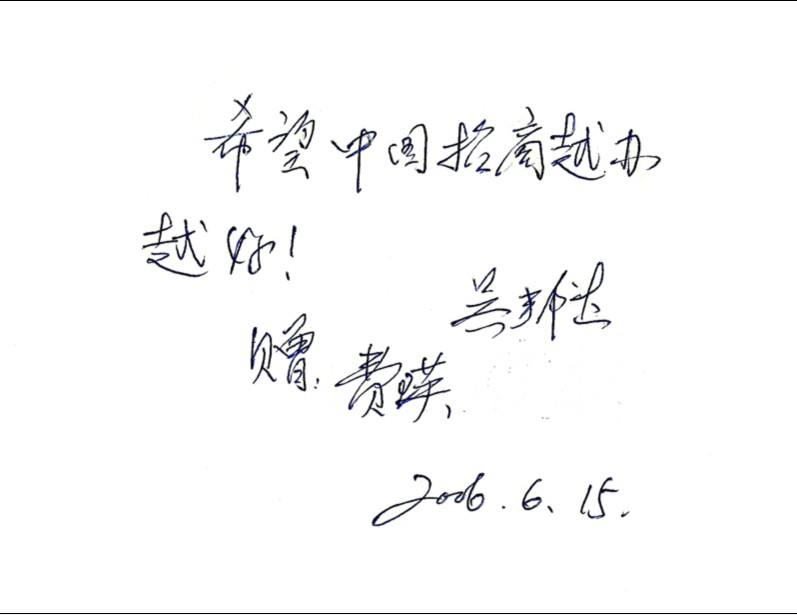 希望中国招商越办
越好！
赠.费瑛、
2006.6.15.